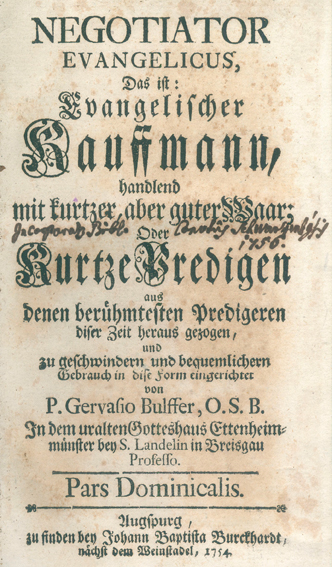 NEGOTIATOR
EVANGELICUS,
Das ist:
Evangelischer
Kauffmann,
handlend
mit kurtzer, aber guter Waar:
Oder
Kurtze Predigen
aus
denen berühmtesten Predigeren
diser Zeit heraus gezogen,
und
zu geschwindern und bequemlichern
Gebrauch in dise Form eingerichtet
von
P. Gervasio Bulffer, O. S. B.
In dem uralten Gotteshaus Ettenheim-
münster bey S. Landelin in Breisgau
Professo.
Pars Dominicalis.
Augspurg,
zu finden bey Johann Baptista Burckhardt,
nächst dem Weinstadel, 1754.
1756.